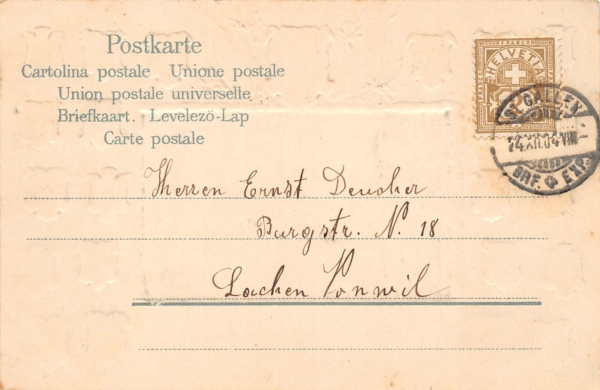 Postkarte
Cartolina postale Unione postale
Union postale universelle
Briefkaart. Levelezö-Lap
Carte postale
HELVETIA
FRANCO
ST. GALLEN
24.XII.04.VIII
BRF. EXP.
Herren Ernst Deucher
Burgstr. N. 18
Lachen Vonwil